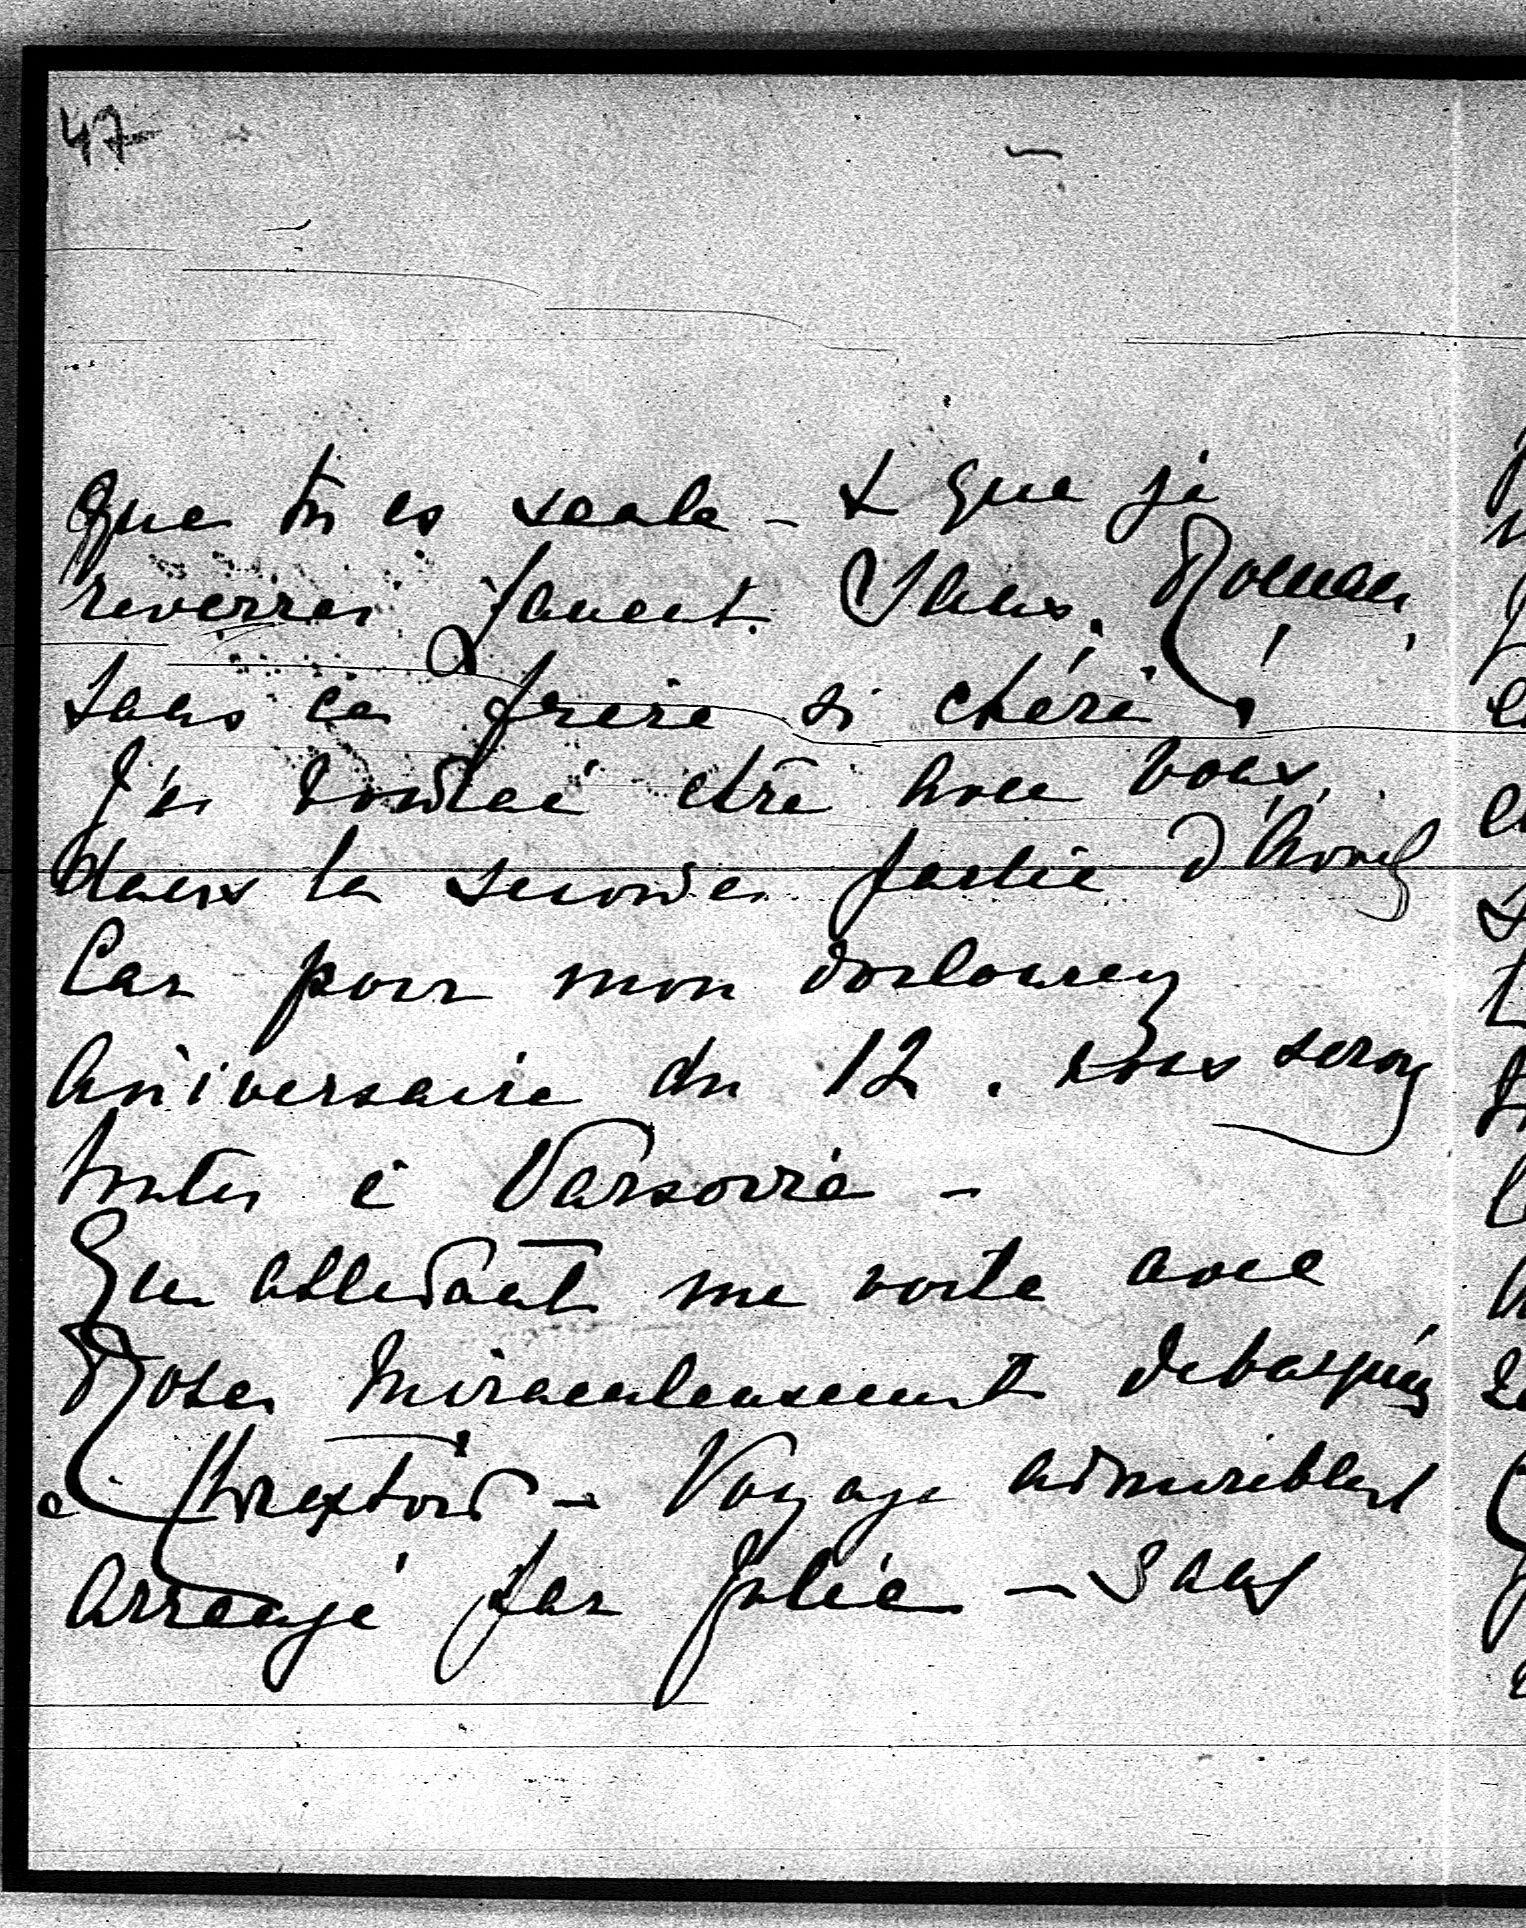 47
que tu es seule - & que je
reverrai Janent. Sans. Roman,
sans ce frère si chéri !
J'ai voulue être avec vous,
dans la seconde partie d'Avril
Car pour mon douloureux
aniversaire du 12. vous serez
toutes à Varsovie -
En attendant me voila avec
Rosa miraculeusement debarquées
à - Voyage admirablement
arrangé par Julie - sans